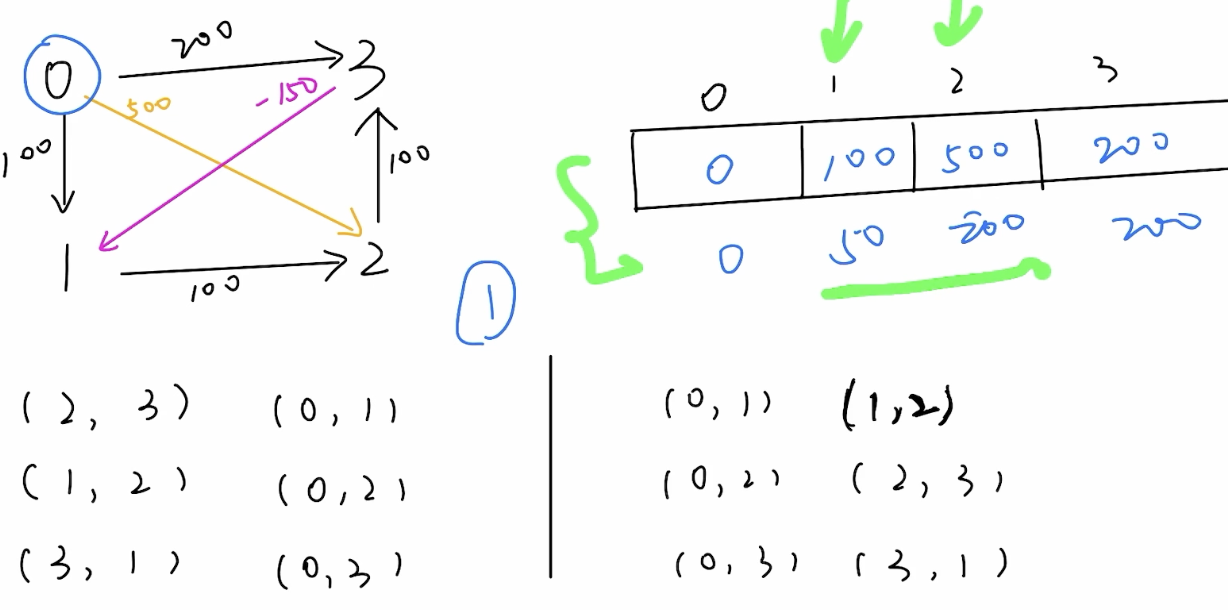 200
0 3
500 -150
100 100
1 2
100
0 1 2 3
0 100 500 200
0 50 200 200
1
(2, 3) (0, 1)
(1, 2) (0, 2)
(3, 1) (0, 3)
(0, 1) (1, 2)
(0, 2) (2, 3)
(0, 3) (3, 1)